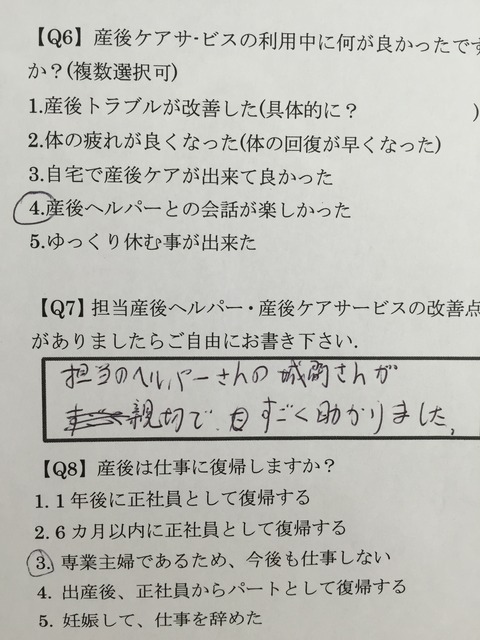 【Q6】産後ケアサ‐ビスの利用中に何が良かったです
か？(複数選択可)
1.産後トラブルが改善した(具体的に？ )
2.体の疲れが良くなった(体の回復が早くなった)
3.自宅で産後ケアが出来て良かった
4.産後ヘルパーとの会話が楽しかった
5.ゆっくり休む事が出来た
【Q7】担当産後ヘルパー・産後ケアサービスの改善点
がありましたらご自由にお書き下さい.
担当のヘルパーさんの さんが
親切で すごく助かりました。
【Q8】産後は仕事に復帰しますか？
1. 1年後に正社員として復帰する
2. 6カ月以内に正社員として復帰する
3. 専業主婦であるため、今後も仕事しない
4. 出産後、正社員からパートとして復帰する
5. 妊娠して、仕事を辞めた